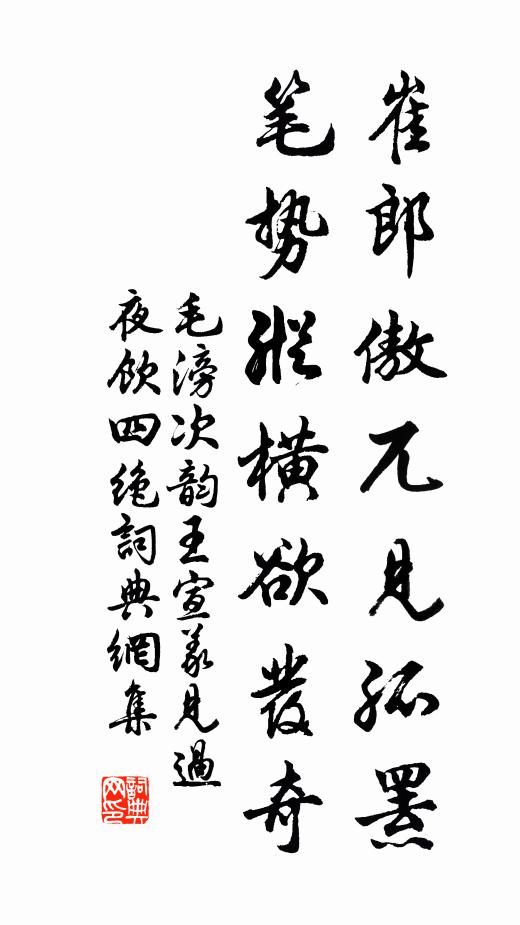 崔郎傲兀見孤罴
笔势縱橫欲發奇
毛滂次韵王宣義見過
夜飲四絕詞典網集
詞典
网印